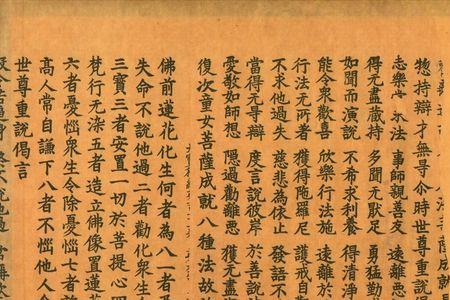 惣持辯才無导尒時世尊重說
志樂求法 事師親善友 遠離
得无盡藏持 多聞无猒足 勇猛勤
如聞而演說 不希求利養 得清淨
能令衆歡喜 欣樂行法施 遠離於
行法无所 獲得陁羅尼 護戒自
不求他過失 慈悲為依止 發語不
當得无导辯 度言說彼岸 於善說
愛敬如師想 隱過勸離惡 獲无盡
復次童女菩薩成就八種法故
佛前蓮花化生何者為八一者乃
失命不說他過二者勸化衆生
三寶三者安置一切於菩提心四
梵行无染五者造立佛像置蓮
六者憂惱衆生令除憂惱七者於
高人常自謙下八者不惱他人
世尊重說偈言